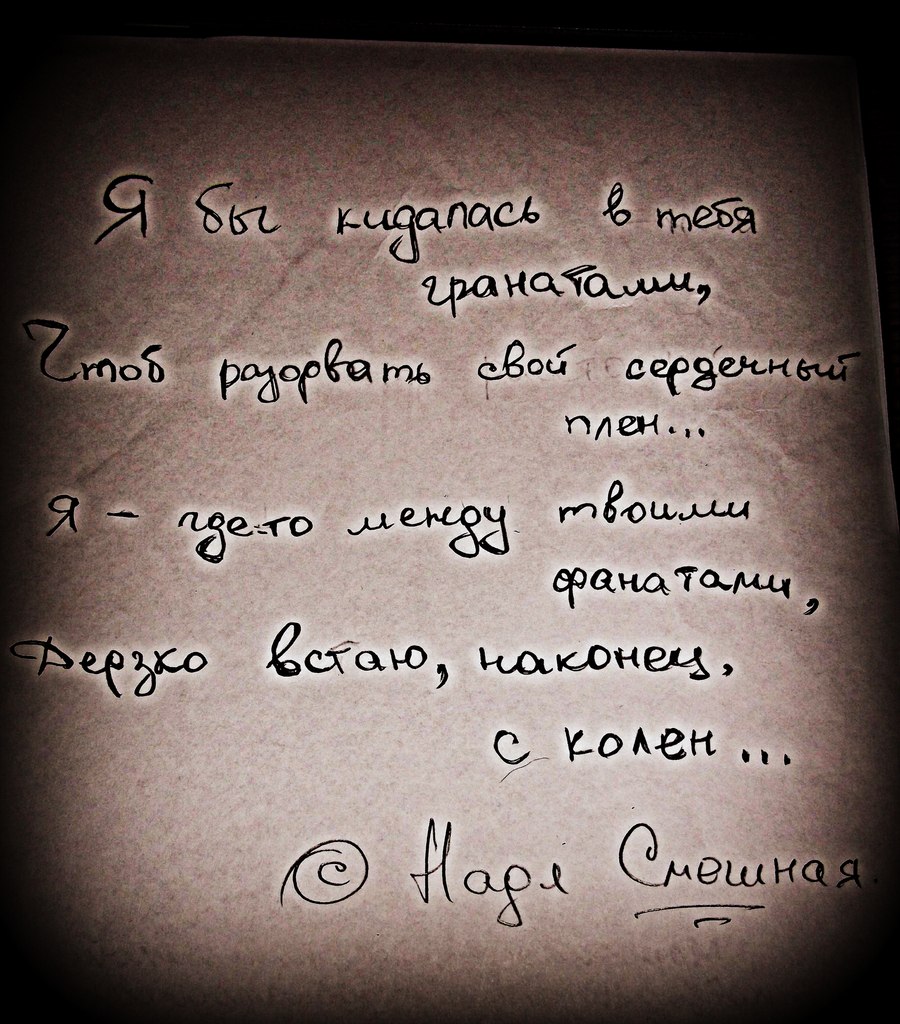 Я бы кидалась в тебя
гранатами,
Чтоб разорвать свой сердечный
плен...
Я - где-то между твоими
фанатами,
Дерзко встаю, наконец,
с колен...
© Надя Смешная.